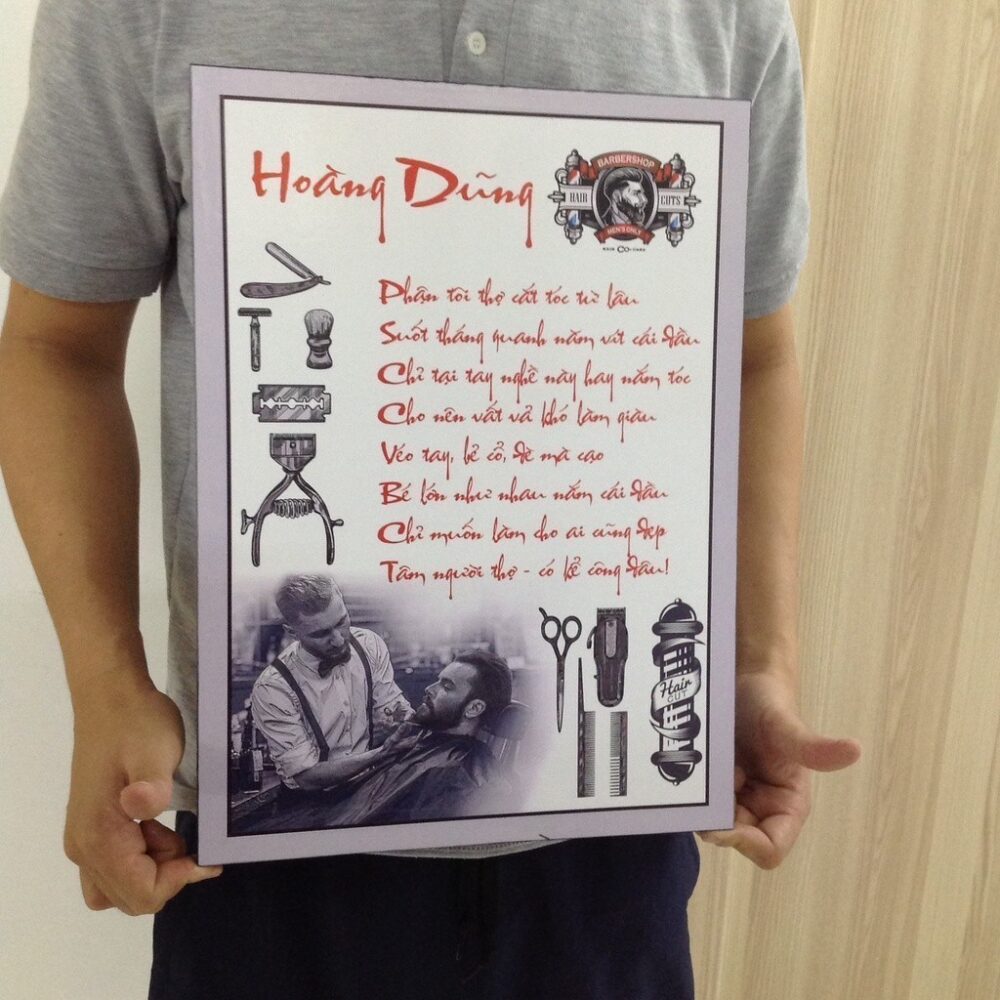 Hoàng Dũng
BARBERSHOP
HAIR CUTS
MEN'S ONLY
CO
Phận tôi thợ cắt tóc từ lâu
Suốt tháng quanh năm vít cái đầu
Chỉ tại tay nghề này hay nắm tóc
Cho nên vất vả khó làm giàu
Véo tay, bẻ cổ, đè mà cạo
Bé lớn như nhau nắm cái đầu
Chỉ muốn làm cho ai cũng đẹp
Tâm người thợ - có kể công đâu!
Hair
CUT